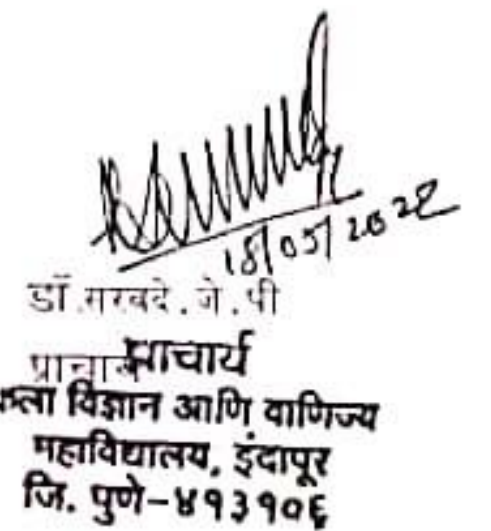 18/05/2022
डॉ.सरवदे.जे.पी
प्राचार्य
प्राचार्य
कला विज्ञान आणि वाणिज्य
महाविद्यालय, इंदापूर
जि. पुणे-४१३१०६